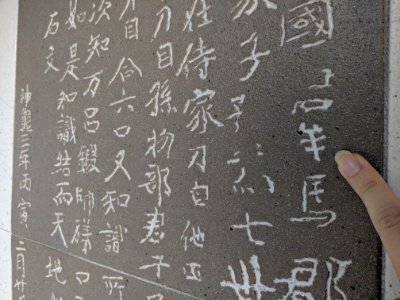 國羣馬郡
家子孫為七世
在侍家刀自他田
刀自孫物部君午
刀自合六口又知識所
次知万呂鍛師礒
如是知識結而天地
石文
神龜三年丙寅二月廿